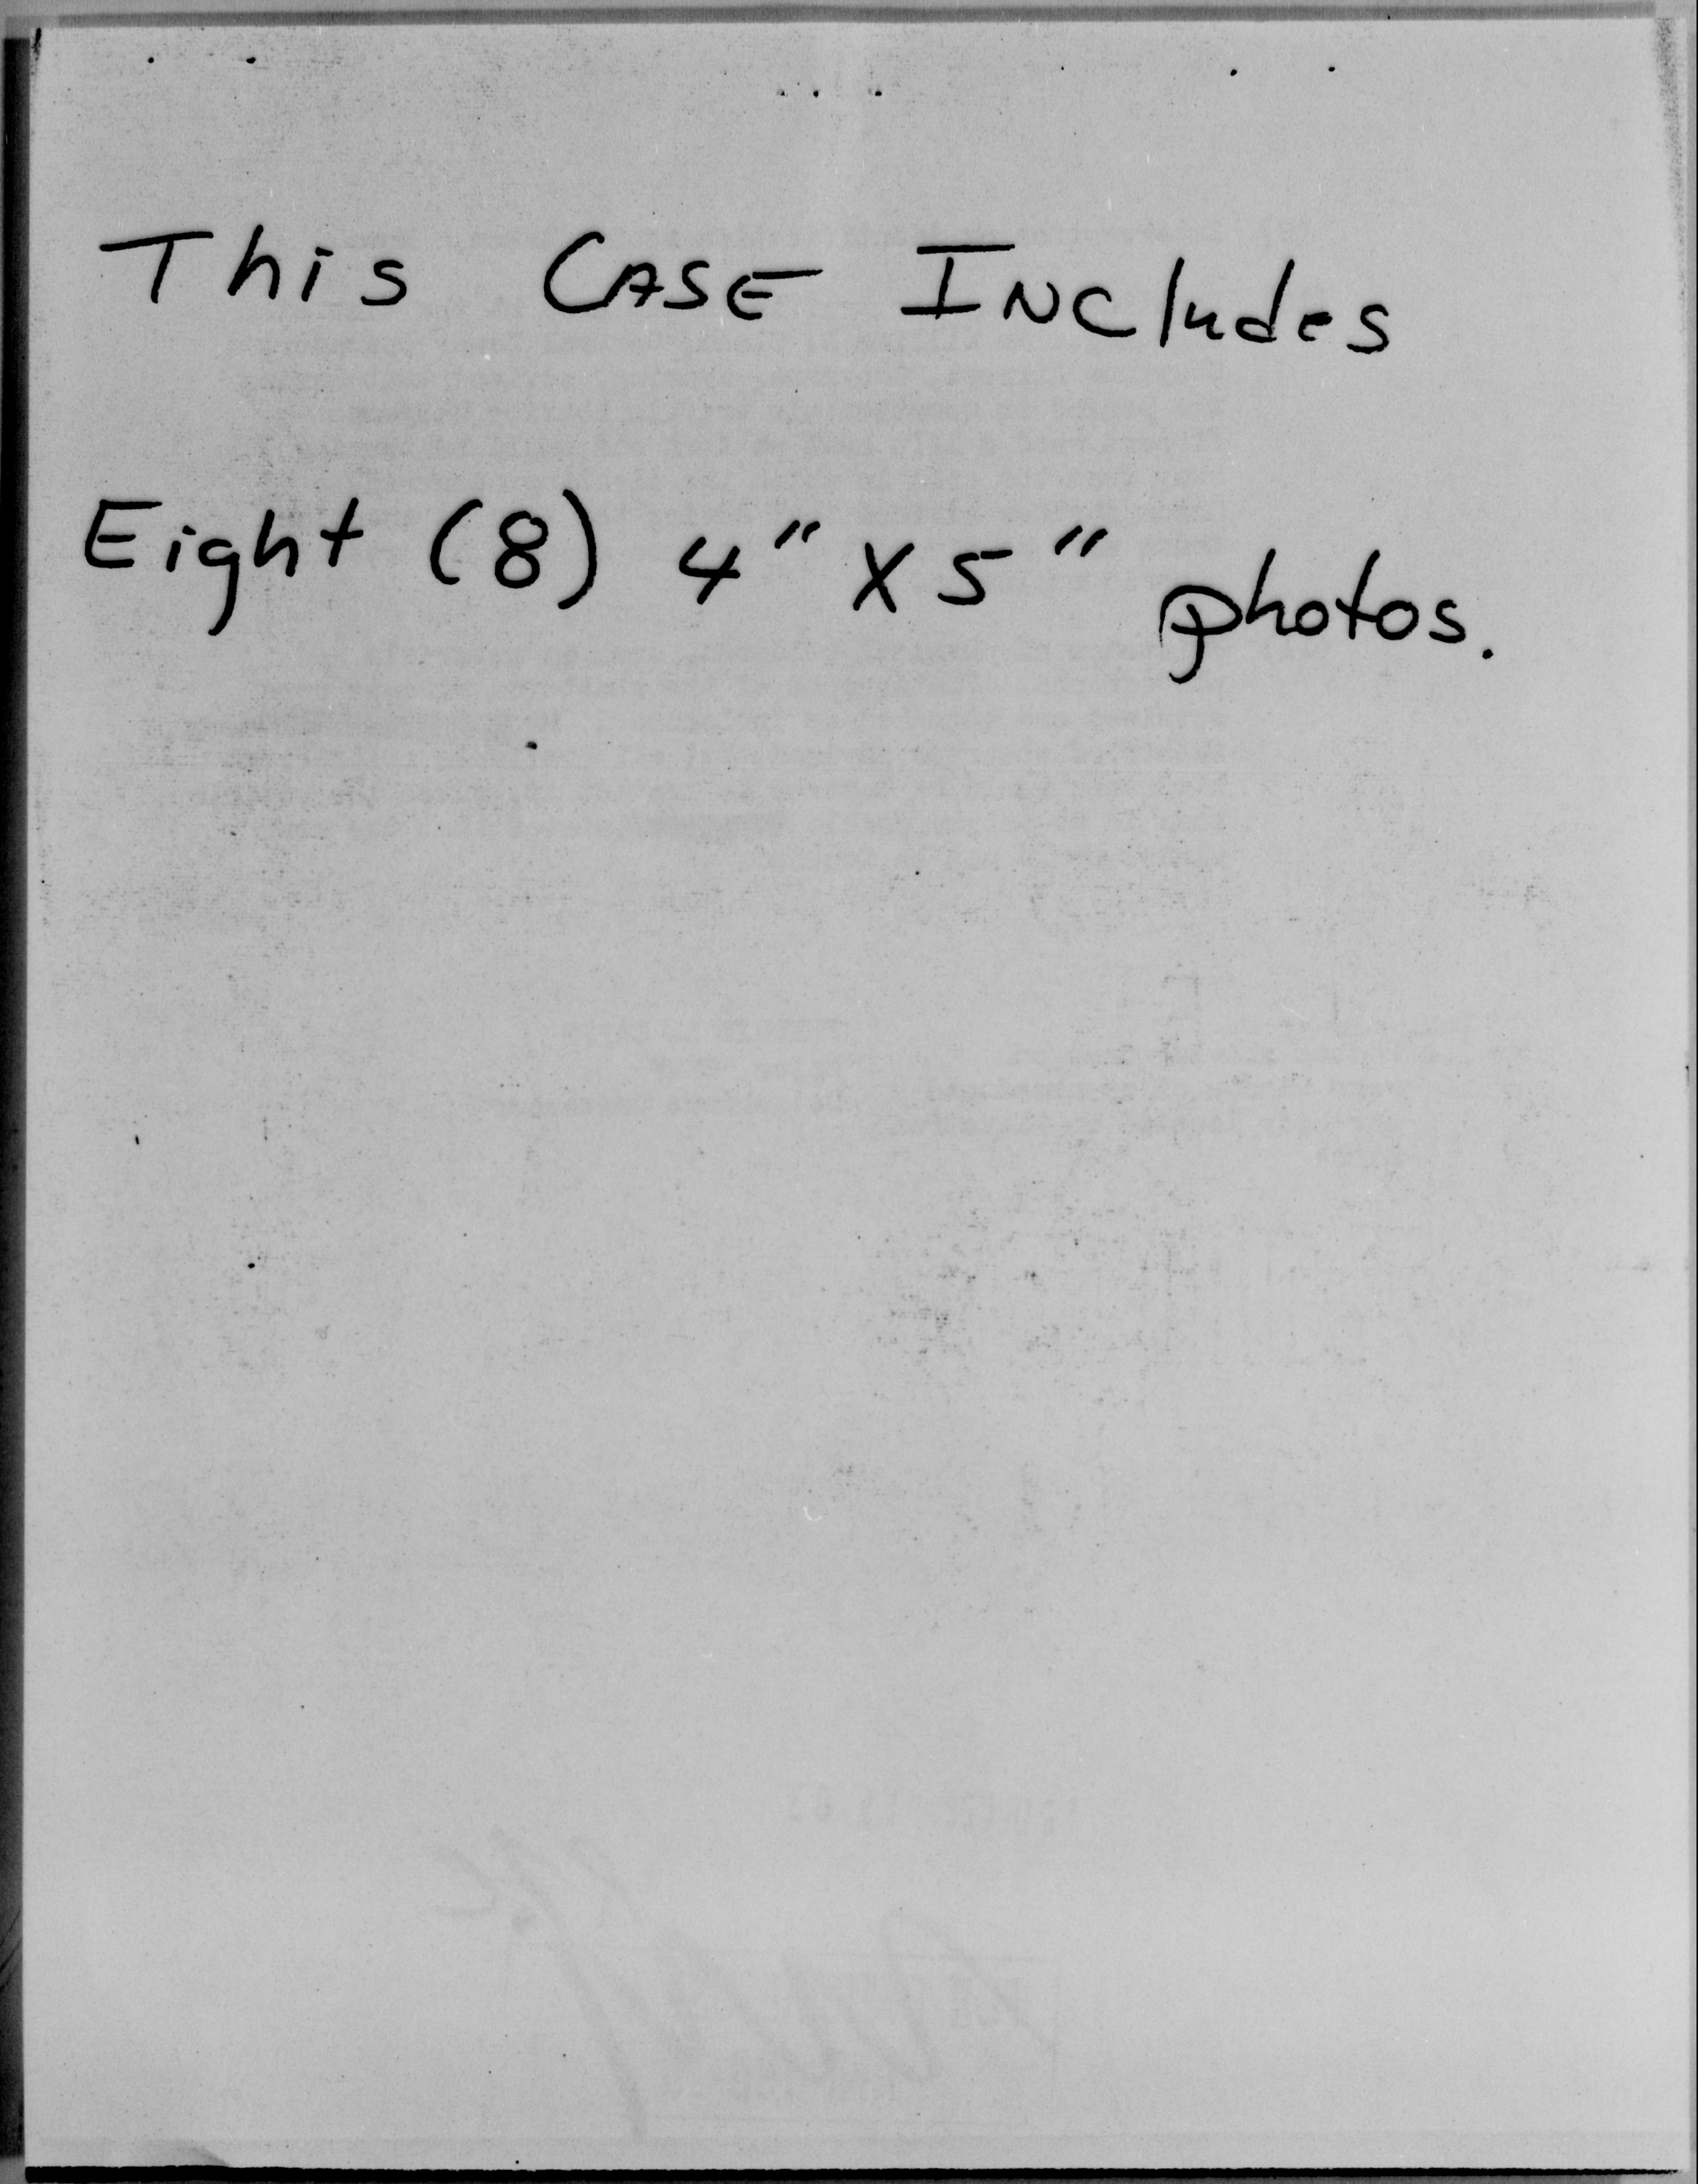 This CASE INCludes
Eight (8) 4" X 5" photos.